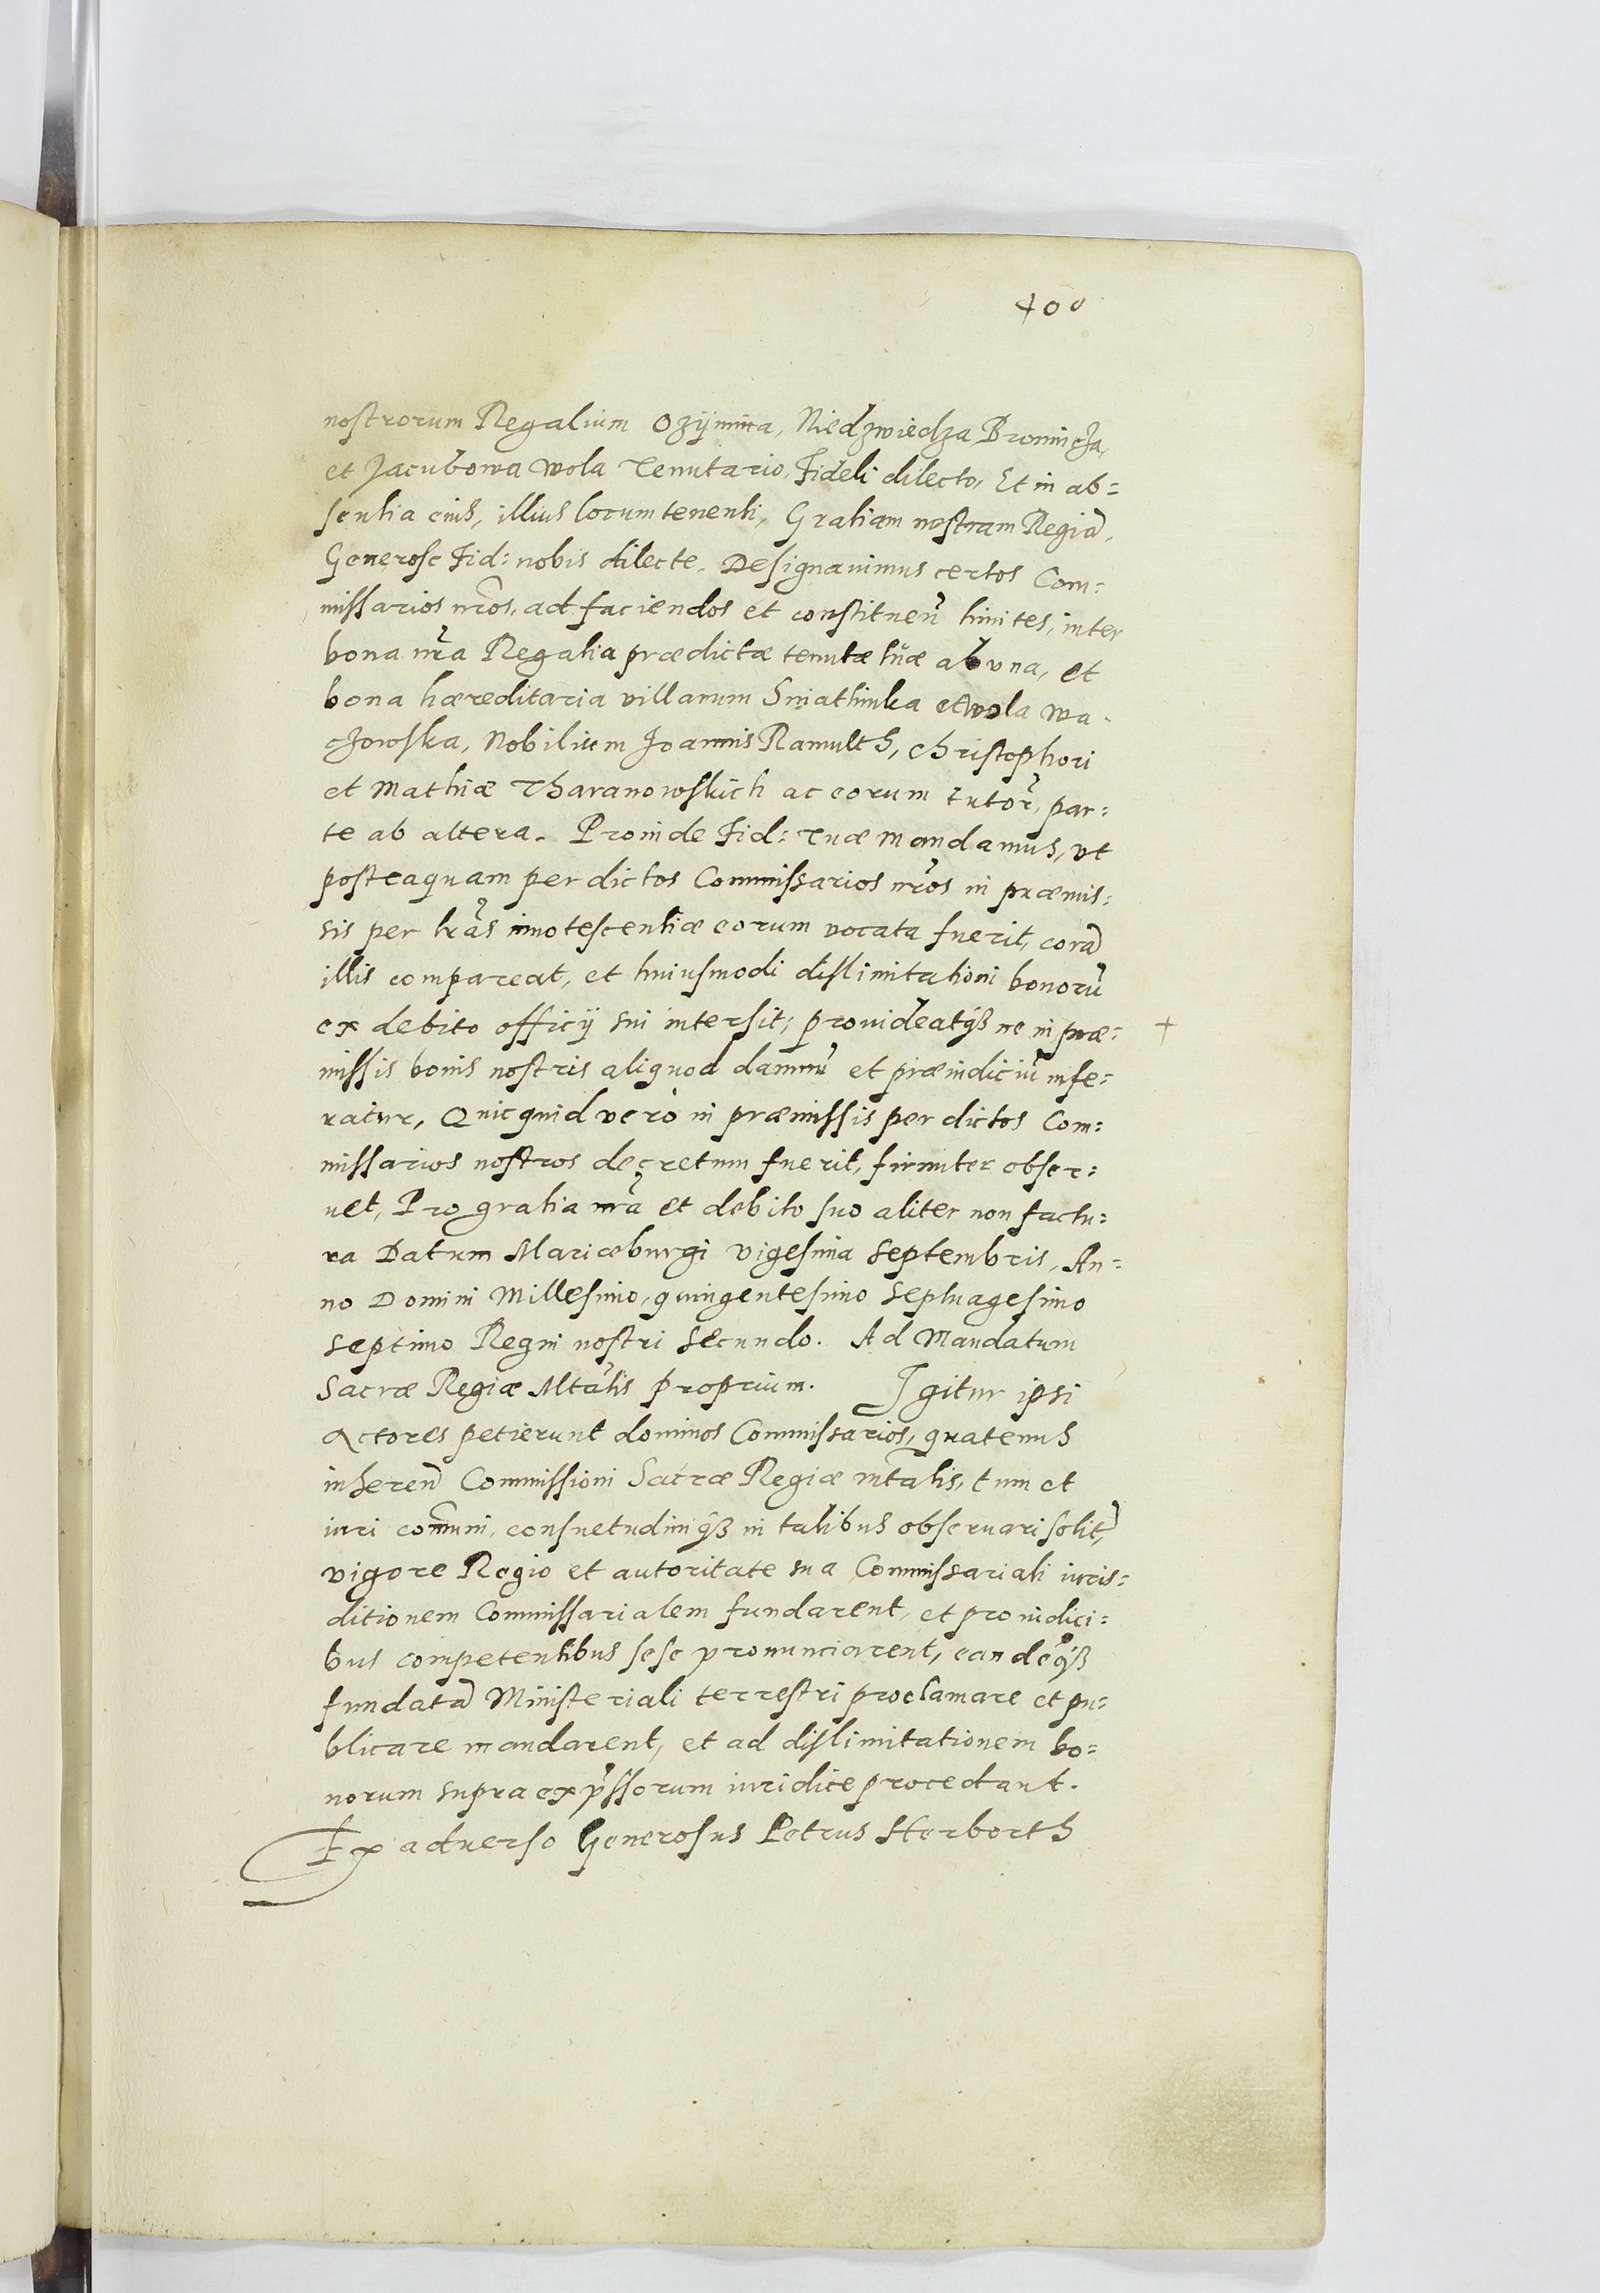 400
nostrorum Regalium Ozijmina, Niedzwiedza Bronnicza,
et Jacubowa wola Tenutario, Fideli dilecto, Et in ab=
sentia eius, illius locum tenenti, Gratiam nostram Regiã,
Generose Fid: nobis dilecte. Designauimus certos Com=
missarios nr̃os, ad faciendos et constituen̄ limites, inter
bona nr̃a Regalia prædictæ tenutæ tuæ ab vna, et
bona hæreditaria villarum Sniathinka et wola wa-
czowska, Nobilium Joannis Ramulth, Christophori
et Mathiæ Tharanowskich ac eorum tutor̃, par=
te ab altera. Proinde Fid: Tuæ Mandamus, vt
posteaquam per dictos Commissarios nr̃os in præmis=
sis per lr̃as innotescentiæ eorum vocata fuerit, corã
illis compareat, et huiusmodi dislimitationi bonorũ
ex debito officij sui intersit; prouideatqꝫ ne in præ= +
missis bonis nostris aliquod damnũ et præiudiciũ infe=
ratur, Quicquid verò in præmissis per dictos Com=
missarios nostros decretum fuerit, firmiter obser=
uet, Pro gratia nr̃a et debito suo aliter non factu=
ra Datum Mariæburgi vigesima septembris, An=
no Domini Millesimo, quingentesimo septuagesimo
septimo Regni nostri secundo. Ad Mandatum
Sacræ Regiæ Mtãtis proprium. Igitur ipsi
Actores petierunt dominos Commissarios, quatenus
inheren̄ Commissioni Sacræ Regiæ Mtãtis, tum et
iuri com̃uni, consuetudiniqꝫ in talibus obseruari solit̃,
vigore Regio et autoritate sua Commissariali iuris=
ditionem Commissarialem fundarent, et pro iudici=
bus competentibus sese pronunciarent, eandẽqꝫ
fundatã Ministeriali terrestri proclamare et pu=
blicare mandarent, et ad dislimitationem bo=
norum supra exp̃ssorum iuridice procedant.
Ex aduerso Generosus Petrus Herborth